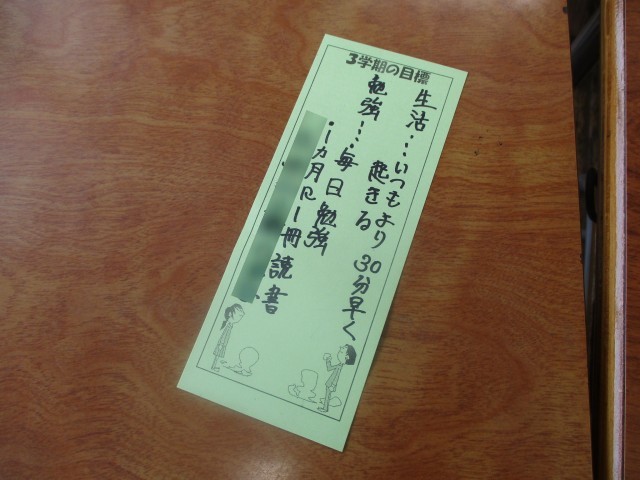 3学期の目標
生活…いつもより30分早く
起きる
勉強…毎日勉強
・1カ月に1冊読書